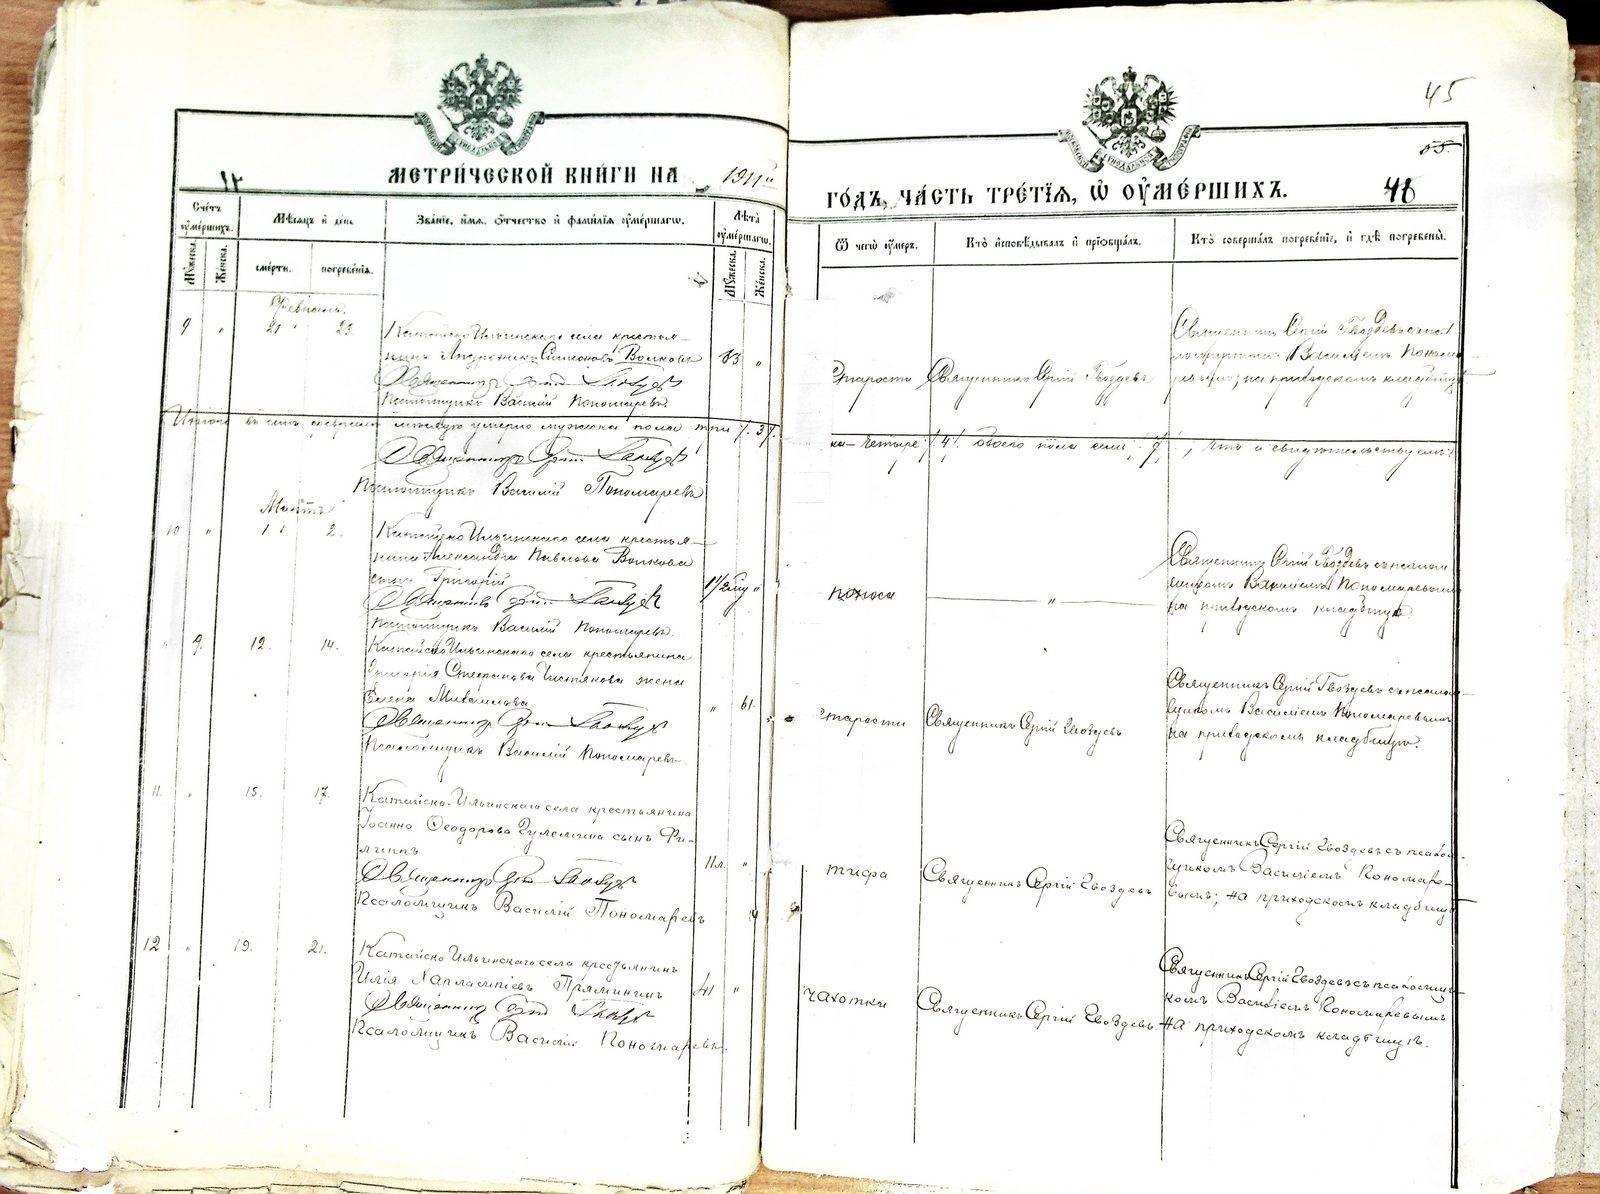 45
55.
МЕТРИ́ЧЕСКОЙ КНИ́ГИ НА 1911й
ГО́ДЪ, ЧА́СТЬ ТРЕ́ТІЯ, Ѽ ОУМЕ́РШИХЪ.
48
Сче́тъ оумершихъ.
Мѣсяцъ и день
Зва́ніе, и́мя, о́тчество и фами́лія оумершагѡ.
Лѣта оумершагѡ.
Ѿ чегѡ̀ оумеръ.
Кто̀ исповѣдывалъ и пріобщалъ.
Кто̀ соверша́лъ погребе́ніе, и гдѣ̀ погребены̀.
Мужеска.
Женска.
смерти.
погребенія.
Мужеска.
Женска.
Февраль.
9 " 21 23.
Катайско Ильинскаго села крестья-
нинъ Андроникъ Симеоновъ Волковъ
83 "
Священникъ
Псаломщикъ Василій Пономаревъ.
Старости
Священникъ Сергій Гвоздевъ
Священникъ Сергій Гвоздевъ съ пса-
ломщикомъ Василіемъ Понома-
ревымъ; на приходскомъ кладбищѣ
Итого въ семъ мѣсяцѣ умерло мужска пола три /. 3 /.
четыре /. 4 /. обоего пола семь /. 7 /., что и свидѣтельствуемъ:
Священникъ
Псаломщикъ Василій Пономаревъ
Мартъ
10 " 1. 2.
Катайско Ильинскаго села крестья-
нина Александра Павлова Волкова
сынъ Григорій
1 1/2 "
Священникъ
Псаломщикъ Василій Пономаревъ.
поноса
"
Священникъ Сергій Гвоздевъ съ псалом-
щикомъ Василіемъ Пономаревымъ
на приходскомъ кладбищѣ
" 9. 12. 14.
Катайско Ильинскаго села крестьянина
Григорія Стефанова Чистякова жена
Елена Михайлова
" 61.
Священникъ
Псаломщикъ Василій Пономаревъ.
Старости
Священникъ Сергій Гвоздевъ
Священникъ Сергій Гвоздевъ съ псалом-
щикомъ Василіемъ Пономаревымъ
на приходскомъ кладбищѣ.
11. " 15. 17.
Катайско-Ильинскаго села крестьянина
Іоанна Ѳеодорова сынъ Фи-
липпъ
11 л. "
Священникъ
Псаломщикъ Василій Пономаревъ
тифа
Священникъ Сергій Гвоздевъ
Священникъ Сергій Гвоздевъ съ псалом-
щикомъ Василіемъ Пономаре-
вымъ; на приходскомъ кладбищѣ
12 " 19. 21.
Катайско Ильинскаго села крестьянинъ
Илія Харлампіевъ Пряминъ
41 "
Священникъ
Псаломщикъ Василій Пономаревъ.
чахотки
Священникъ Сергій Гвоздевъ.
Священникъ Сергій Гвоздевъ съ псаломщи-
комъ Василіемъ Пономаревымъ
на приходскомъ кладбищѣ.